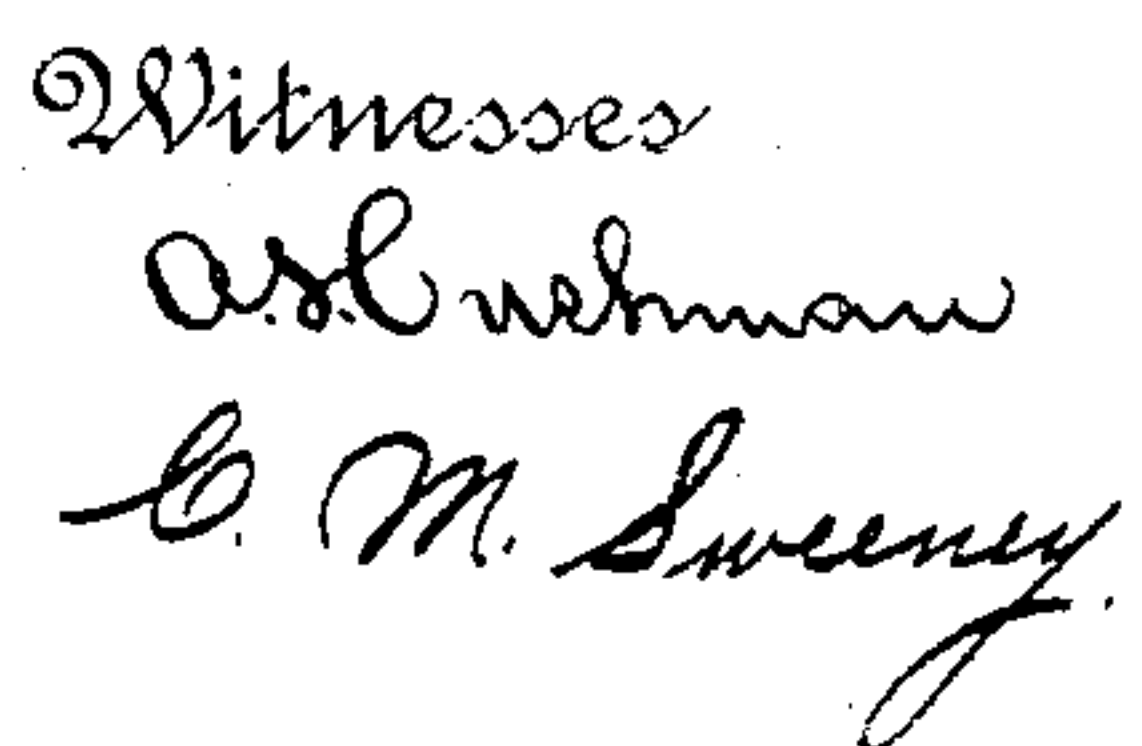 Witnesses
A. S. Cushman
C. M. Sweeney.